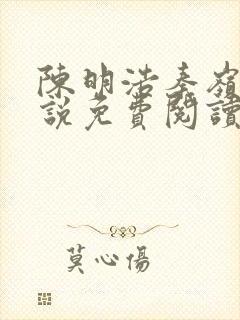 陳明浩秦嶺
說免費閱讀
莫心傷